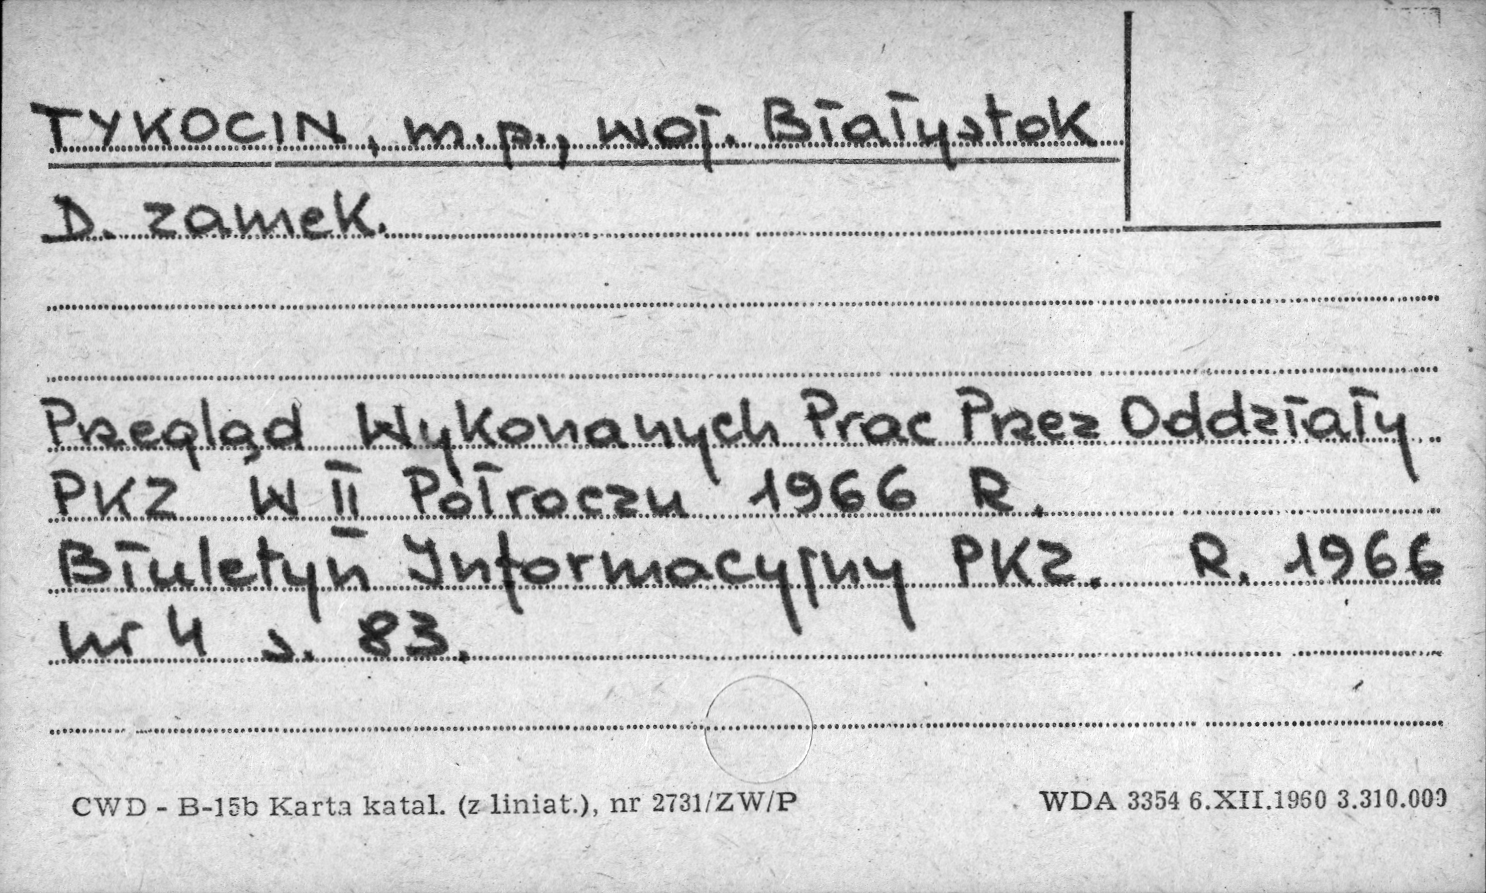 TYKOCIN, m.p., woj. Białystok
D. zamek.
Przegląd Wykonanych Prac Przez Oddziały
PKZ W II Półroczu 1966 R.
Biuletyn Informacyjny PKZ. R. 1966
nr 4 s. 83.
CWD - B-15b Karta katal. (z liniat.), nr 2731/ZW/P
WDA 3354 6.XII.1960 3.310.000